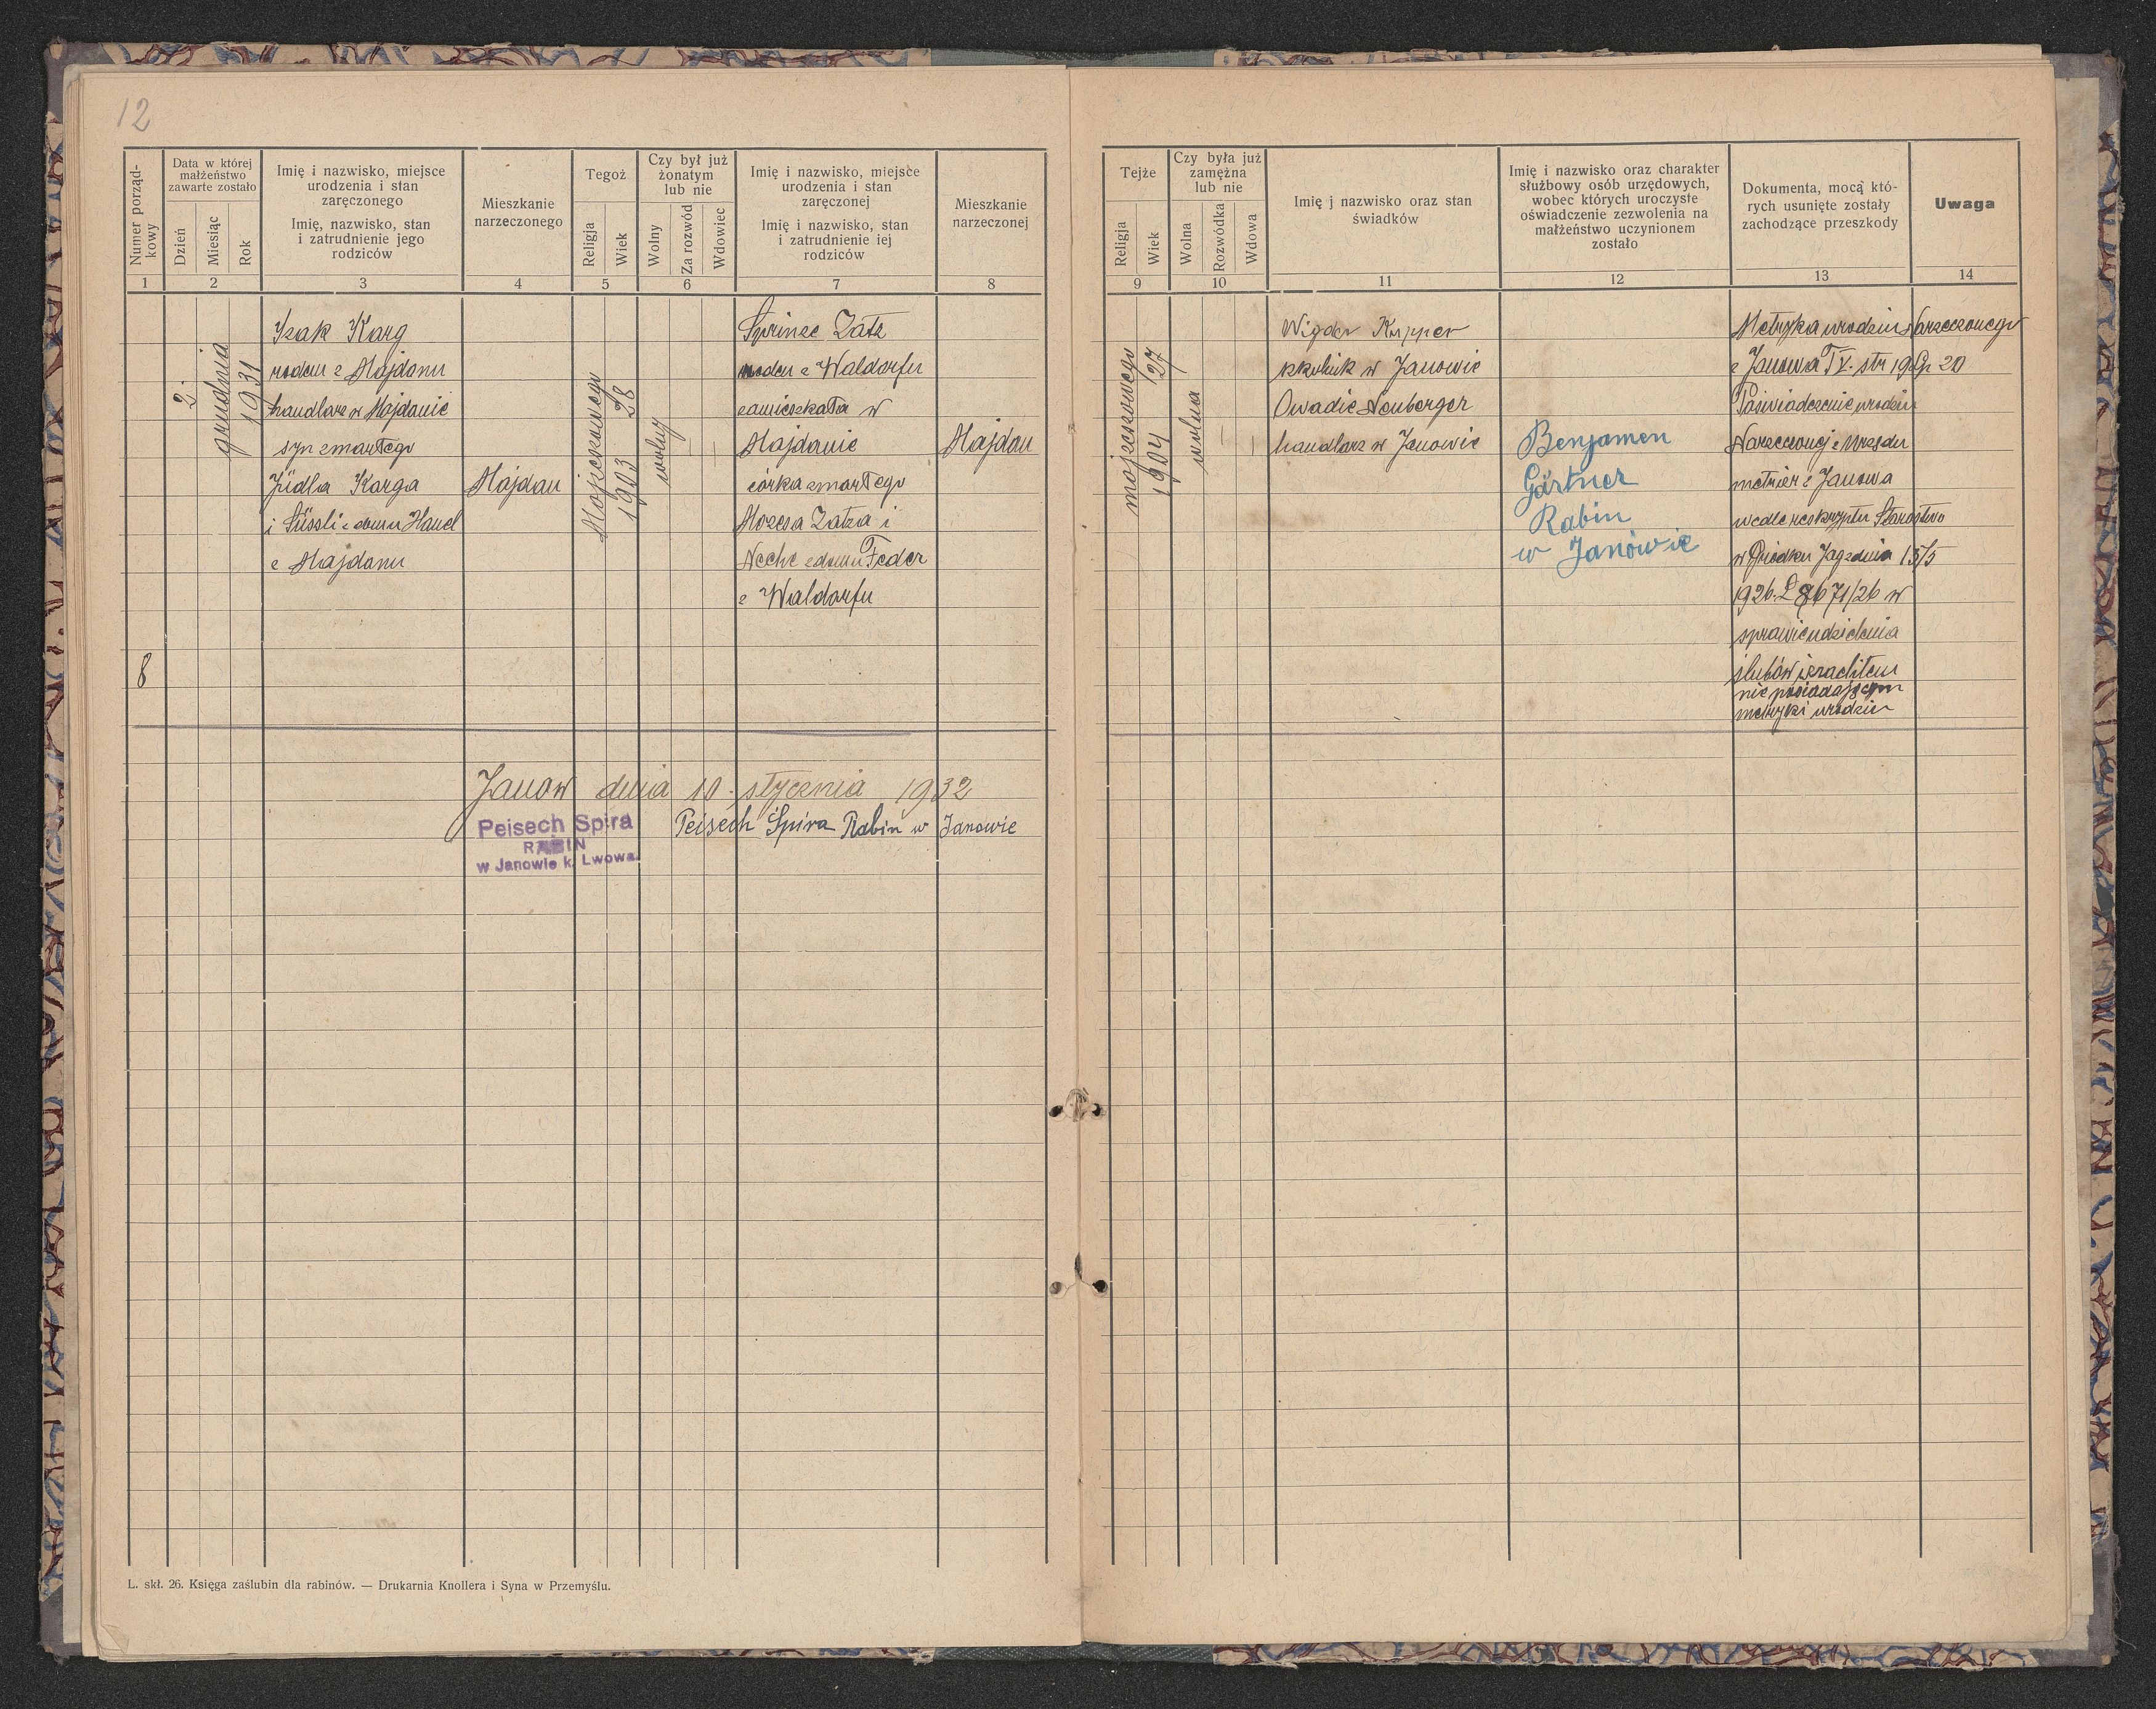 12
Numer porząd-
kowy
Data w której
małżeństwo
zawarte zostało
Dzień
Miesiąc
Rok
Imię i nazwisko, miejsce
urodzenia i stan
zaręczonego
Imię, nazwisko, stan
i zatrudnienie jego
rodziców
Mieszkanie
narzeczonego
Tegoż
Religja
Wiek
Czy był już
żonatym
lub nie
Wolny
Za rozwód
Wdowiec
Imię i nazwisko, miejsce
urodzenia i stan
zaręczonej
Imię i nazwisko, stan
i zatrudnienie iej
rodziców
Mieszkanie
narzeczonej
1 2 3 4 5 6 7 8
8
2.
grudnia
1931
Izak Karg
rodem z Majdanu
handlarz w Majdanie
syn zmarłego
Jüdla Karga
i Süssli z domu Hanel
z Majdanu
Majdan
Mojżeszowego
1903 28
wolny
Sprinze Zatz
rodem z Waldorfu
zamieszkała w
Majdanie
córka zmarłego
Mozesa Zatza i
Neche z domu Feder
z Waldorfu
Majdan
Janow dnia 10. stycznia 1932
Peisech Spira Rabin w Janowie
Peisech Spira
RABIN
w Janowie k. Lwowa
L. skł. 26. Księga zaślubin dla rabinów. — Drukarnia Knollera i Syna w Przemyślu.
Tejże
Religja
Wiek
Czy była już
zamężna
lub nie
Wolna
Rozwódka
Wdowa
Imię j nazwisko oraz stan
świadków
Imię i nazwisko oraz charakter
służbowy osób urzędowych,
wobec których uroczyste
oświadczenie zezwolenia na
małżeństwo uczynionem
zostało
Dokumenta, mocą któ-
rych usunięte zostały
zachodzące przeszkody
Uwaga
9 10 11 12 13 14
mojżeszowego
1904 27
wolna
Wigdor Kupper
szkolnik w Janowie
Owadie Neuberger
handlarz w Janowie
Benjamen
Gärtner
Rabin
w Janówie
Metryka urodzin Narzeczonego
z Janowa T V. str 19 Lp 20
Poświadczenie urodzin
Narzeczonej z Urzędu
metrier z Janowa
wedle reskryptu Starostwo
w Gródku Jag z dnia 15/5
1926. L 8671/26 w
sprawie udzielenia
ślubów izraelitem
nie posiadającym
metryki urodzin